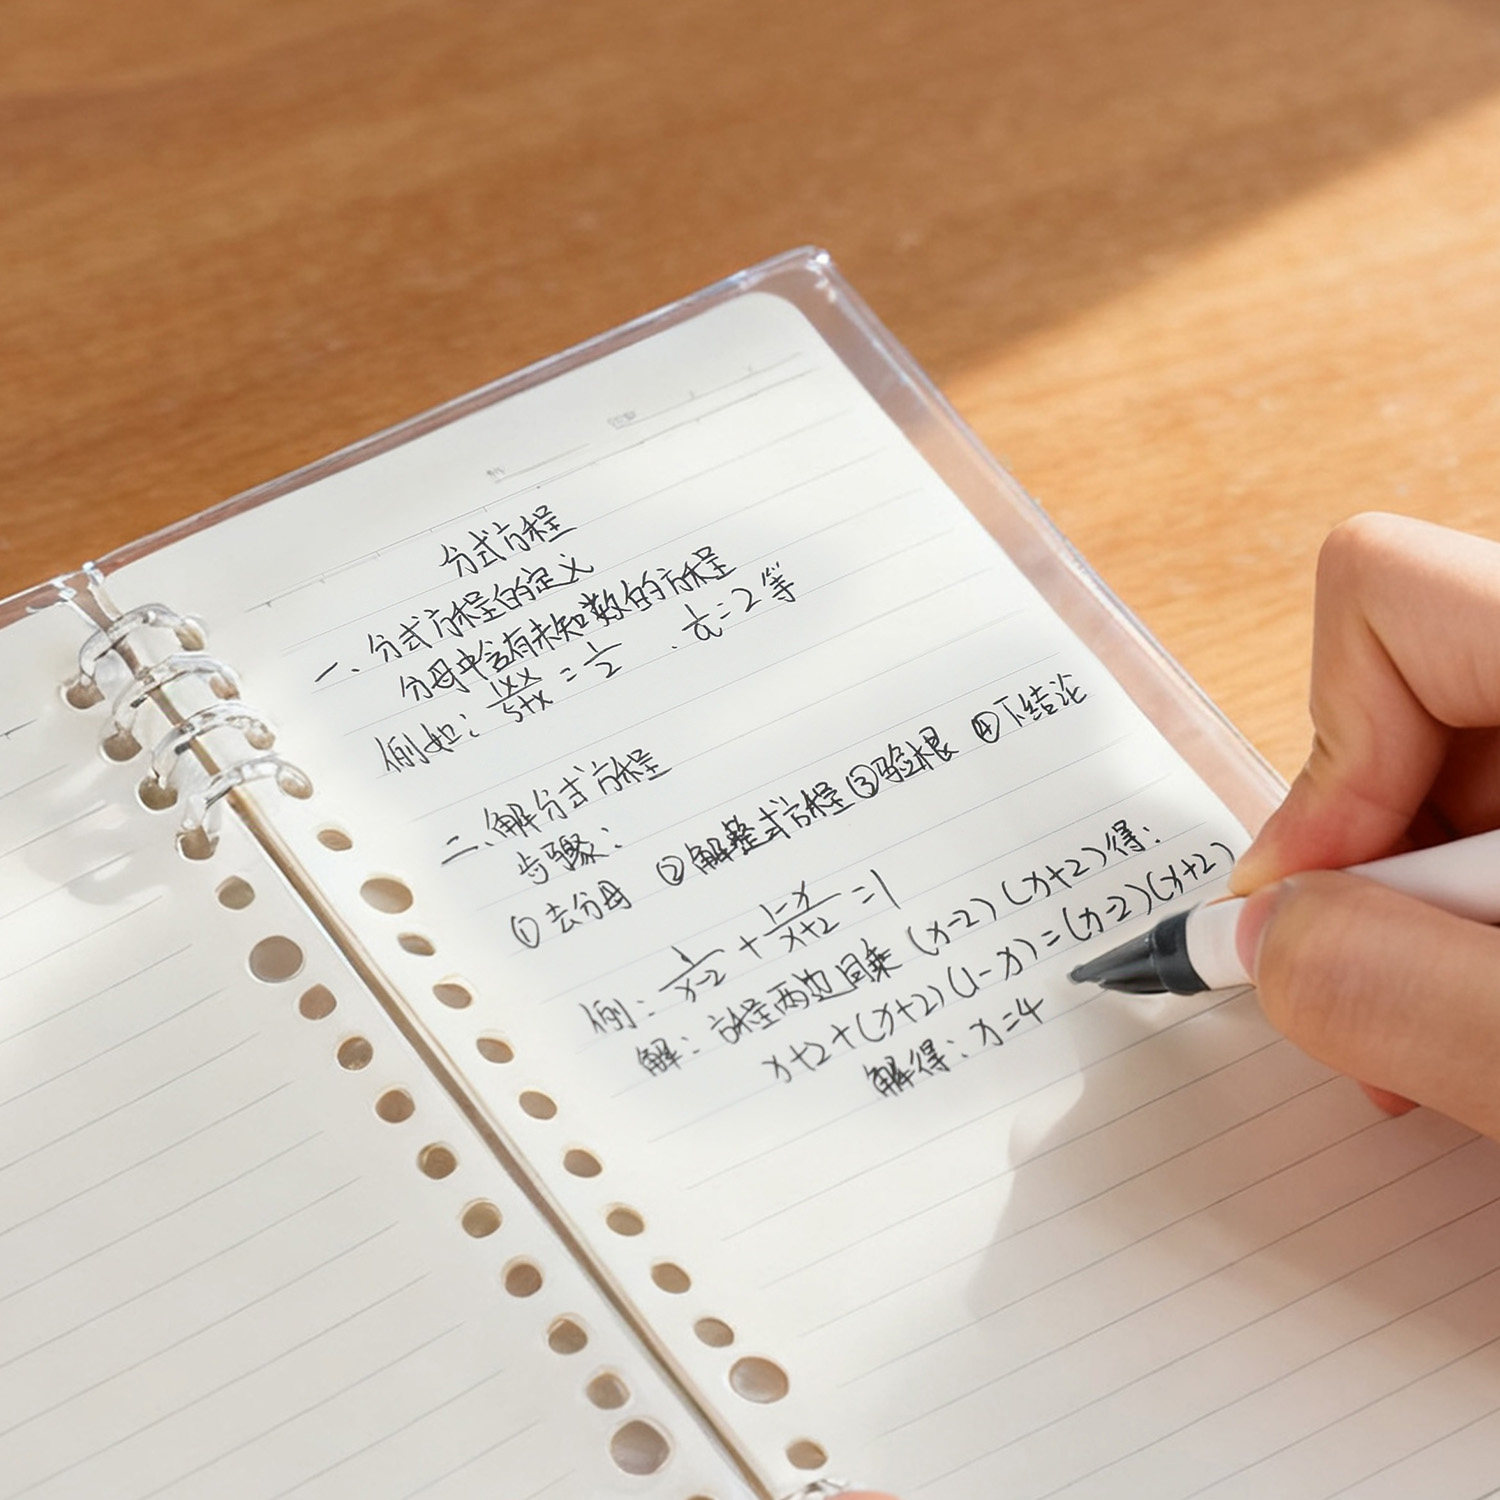 分式方程
一、分式方程的定义
分母中含有未知数的方程
例如: 1xx/5+x = 1/2 、 1/a = 2 等
二、解分式方程
步骤:
①去分母 ②解整式方程 ③验根 ④下结论
例: 1/x-2 + 1-x/x+2 = 1
解: 方程两边同乘 (x-2)(x+2)得:
x+2+(x+2)(1-x)=(x-2)(x+2)
解得: x=4